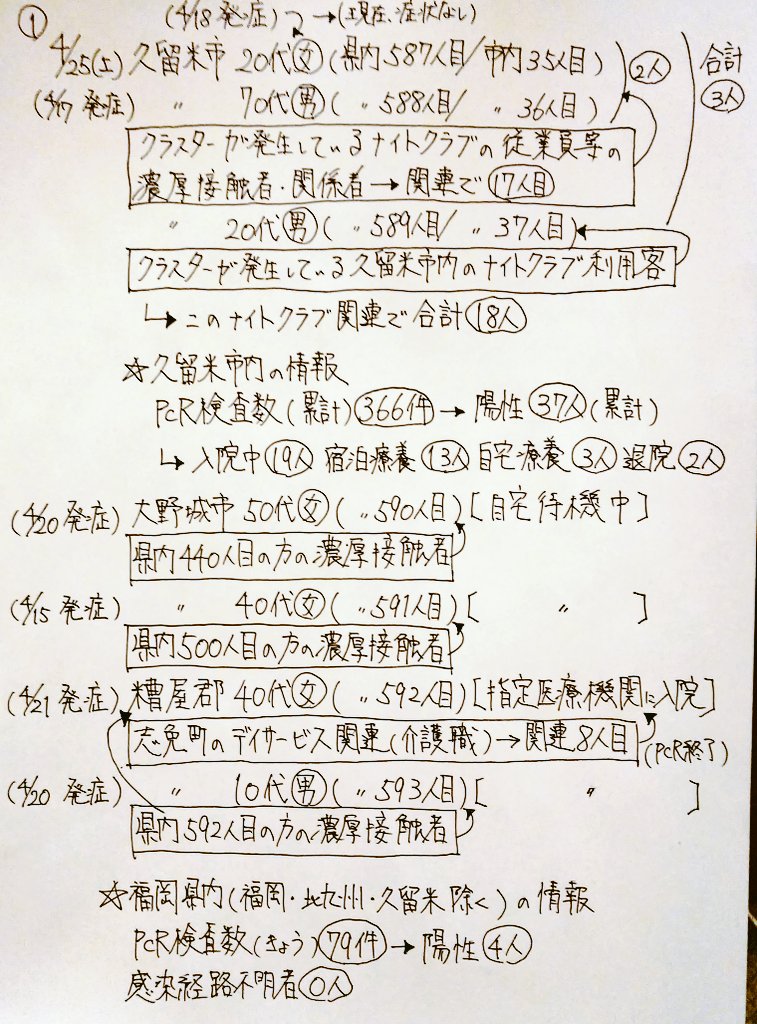 ①
(4/18 発症) →(現在、症状なし)
4/25(土) 久留米市 20代女 (県内587人目/市内35人目) 2人 合計3人
(4/17 発症) 〃 70代男 ( 〃 588人目/ 〃 36人目)
クラスターが発生しているナイトクラブの従業員等の
濃厚接触者・関係者→関連で17人目
〃 20代男 ( 〃 589人目/ 〃 37人目)
クラスターが発生している久留米市内のナイトクラブ利用客
↳このナイトクラブ関連で合計18人
☆久留米市内の情報
PCR検査数(累計)366件→陽性37人(累計)
↳入院中19人 宿泊療養13人 自宅療養3人 退院2人
(4/20 発症) 大野城市 50代女 ( 〃 590人目) [自宅待機中]
県内440人目の方の濃厚接触者
(4/15 発症) 〃 40代女 ( 〃 591人目) [ 〃 ]
県内500人目の方の濃厚接触者
(4/21 発症) 糟屋郡 40代女 ( 〃 592人目) [指定医療機関に入院]
志免町のデイサービス関連(介護職)→関連8人目 (PCR終了)
(4/20 発症) 〃 10代男 ( 〃 593人目) [ 〃 ]
県内592人目の方の濃厚接触者
☆福岡県内(福岡・北九州・久留米除く)の情報
PCR検査数(きょう)79件→陽性4人
感染経路不明者0人